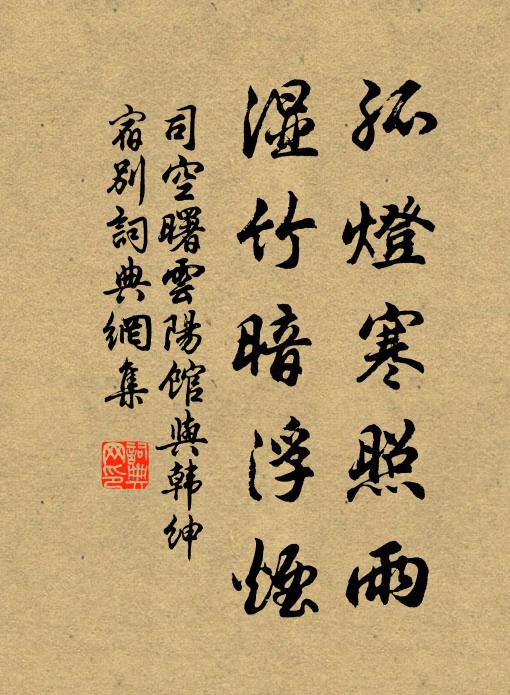 孤燈寒照雨
湿竹暗浮煙
司空曙雲陽館與韩绅
宿別詞典網集
詞典網印